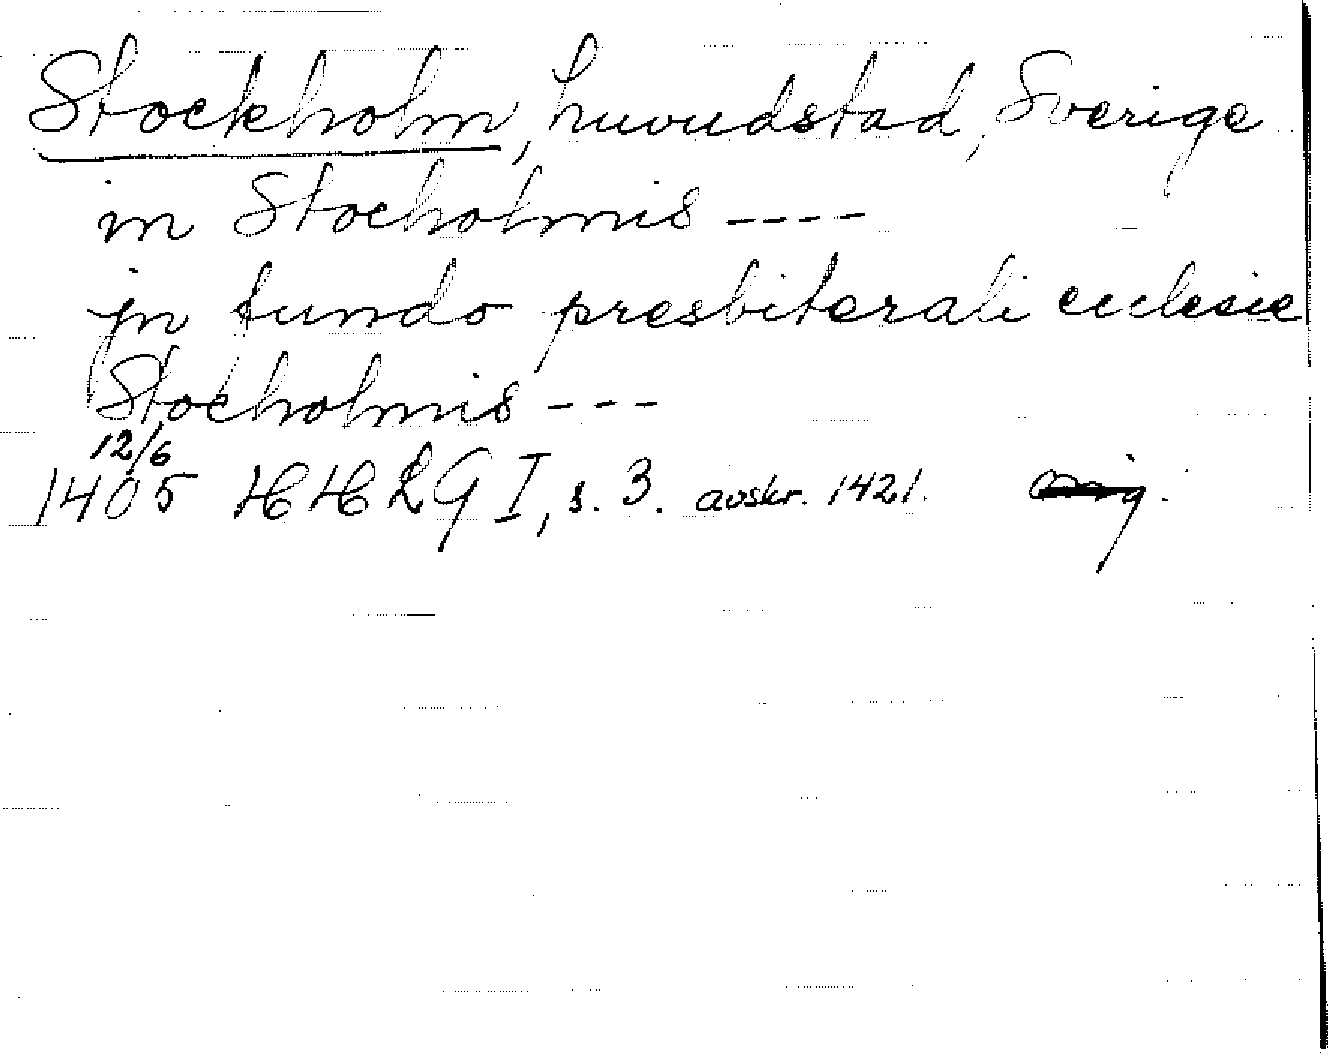 Stockholm, huvudstad, Sverige
in Stocholmis ----
jn fundo presbiterali ecclesie
Stocholmis ---
12/6
1405 HHLG I, s. 3. avskr. 1421. orig.